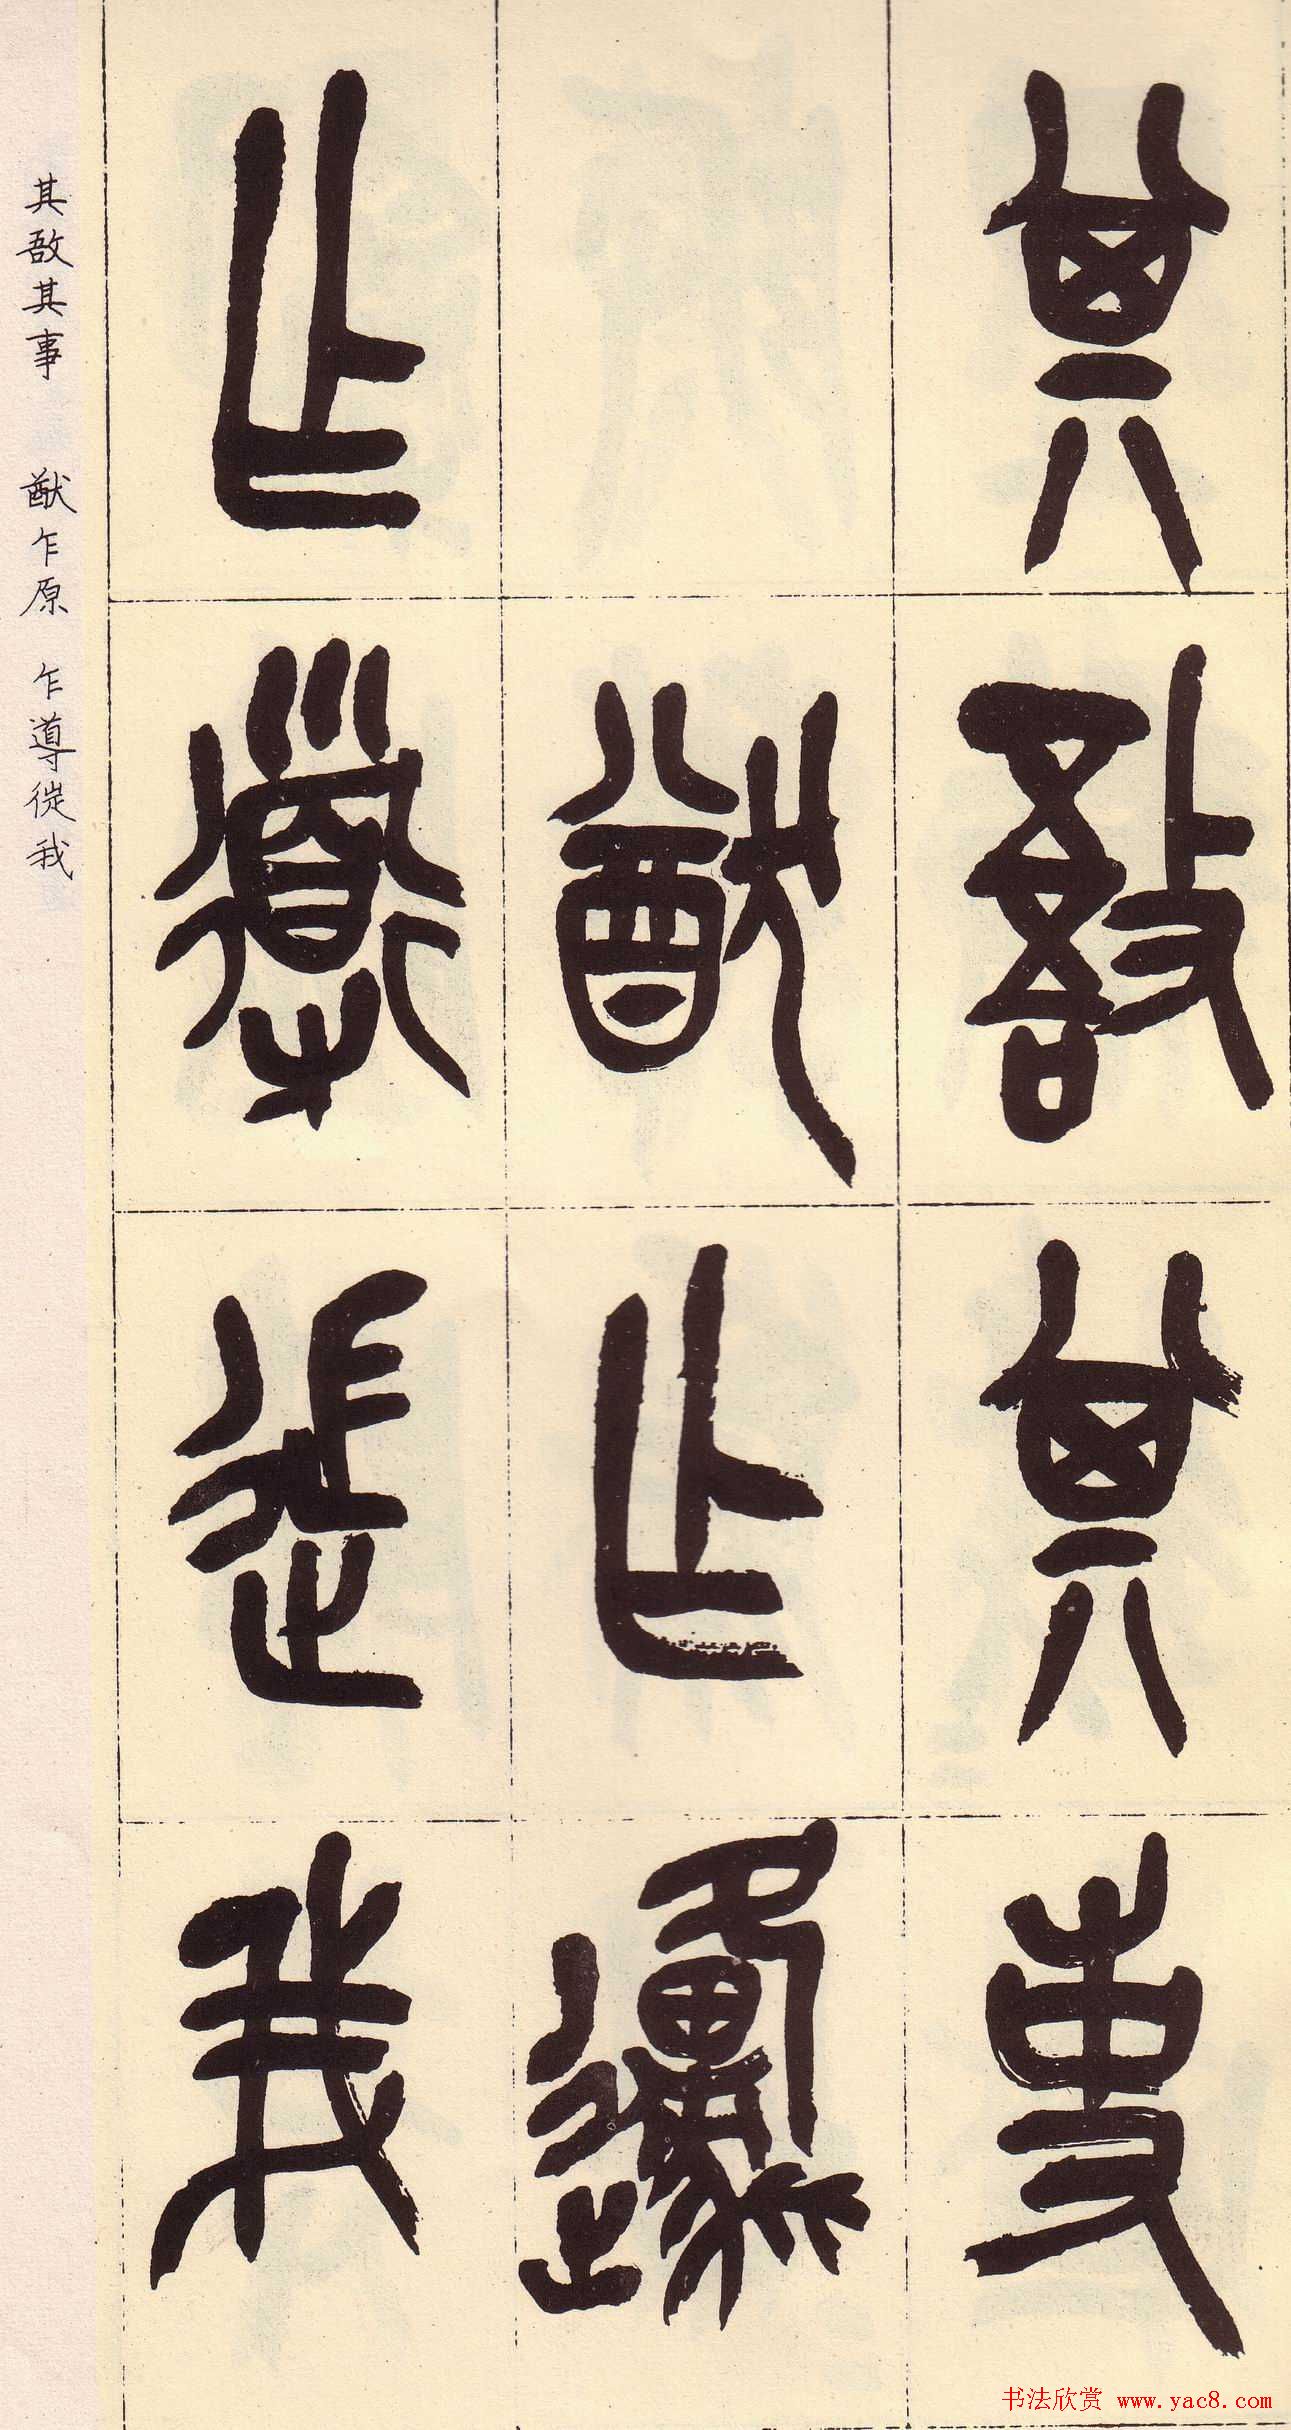 其敔其事
猷乍原
乍導𨑢我
其敔其事 猷乍原 乍導從我
书法欣赏 www.yac8.com